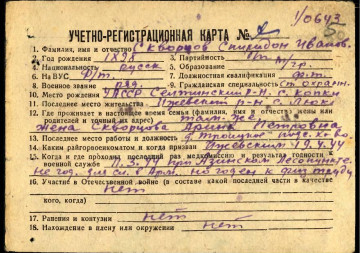 1/0643
УЧЕТНО-РЕГИСТРАЦИОННАЯ КАРТА №
1. Фамилия, имя и отчество Скворцов Спиридон Иванов.
2. Год рождения 1898 3. Партийность б/п
4. Национальность русск 5. Образование н/гр.
6. На ВУС 7. Должностная квалификация
8. Военное звание ряд. 9. Гражданская специальность
10. Место рождения УАССР Селтинский р-н. с. Копки
11. Последнее место жительства Ижевский р-н с. Люк
12. Где проживает в настоящее время семья (фамилия, имя и отчество жены или
родителей и точный их адрес) там же
Жена Скворцова Арина Петровна
13. Последнее место работы и должность
14. Каким райгорвоенкоматом и когда призван Ижевским 19.4.44
15. Когда и где проходил последний раз медкомиссию и результат годности к
военной службе 11.3.44 при Азинском Лесопункте
не год. для сл. в Арм. но годен к физ труду
16. Участие в Отечественной войне (в составе какой последней части в качестве
кого, когда) нет
17. Ранения и контузии нет
18. Нахождение в плену или окружении нет